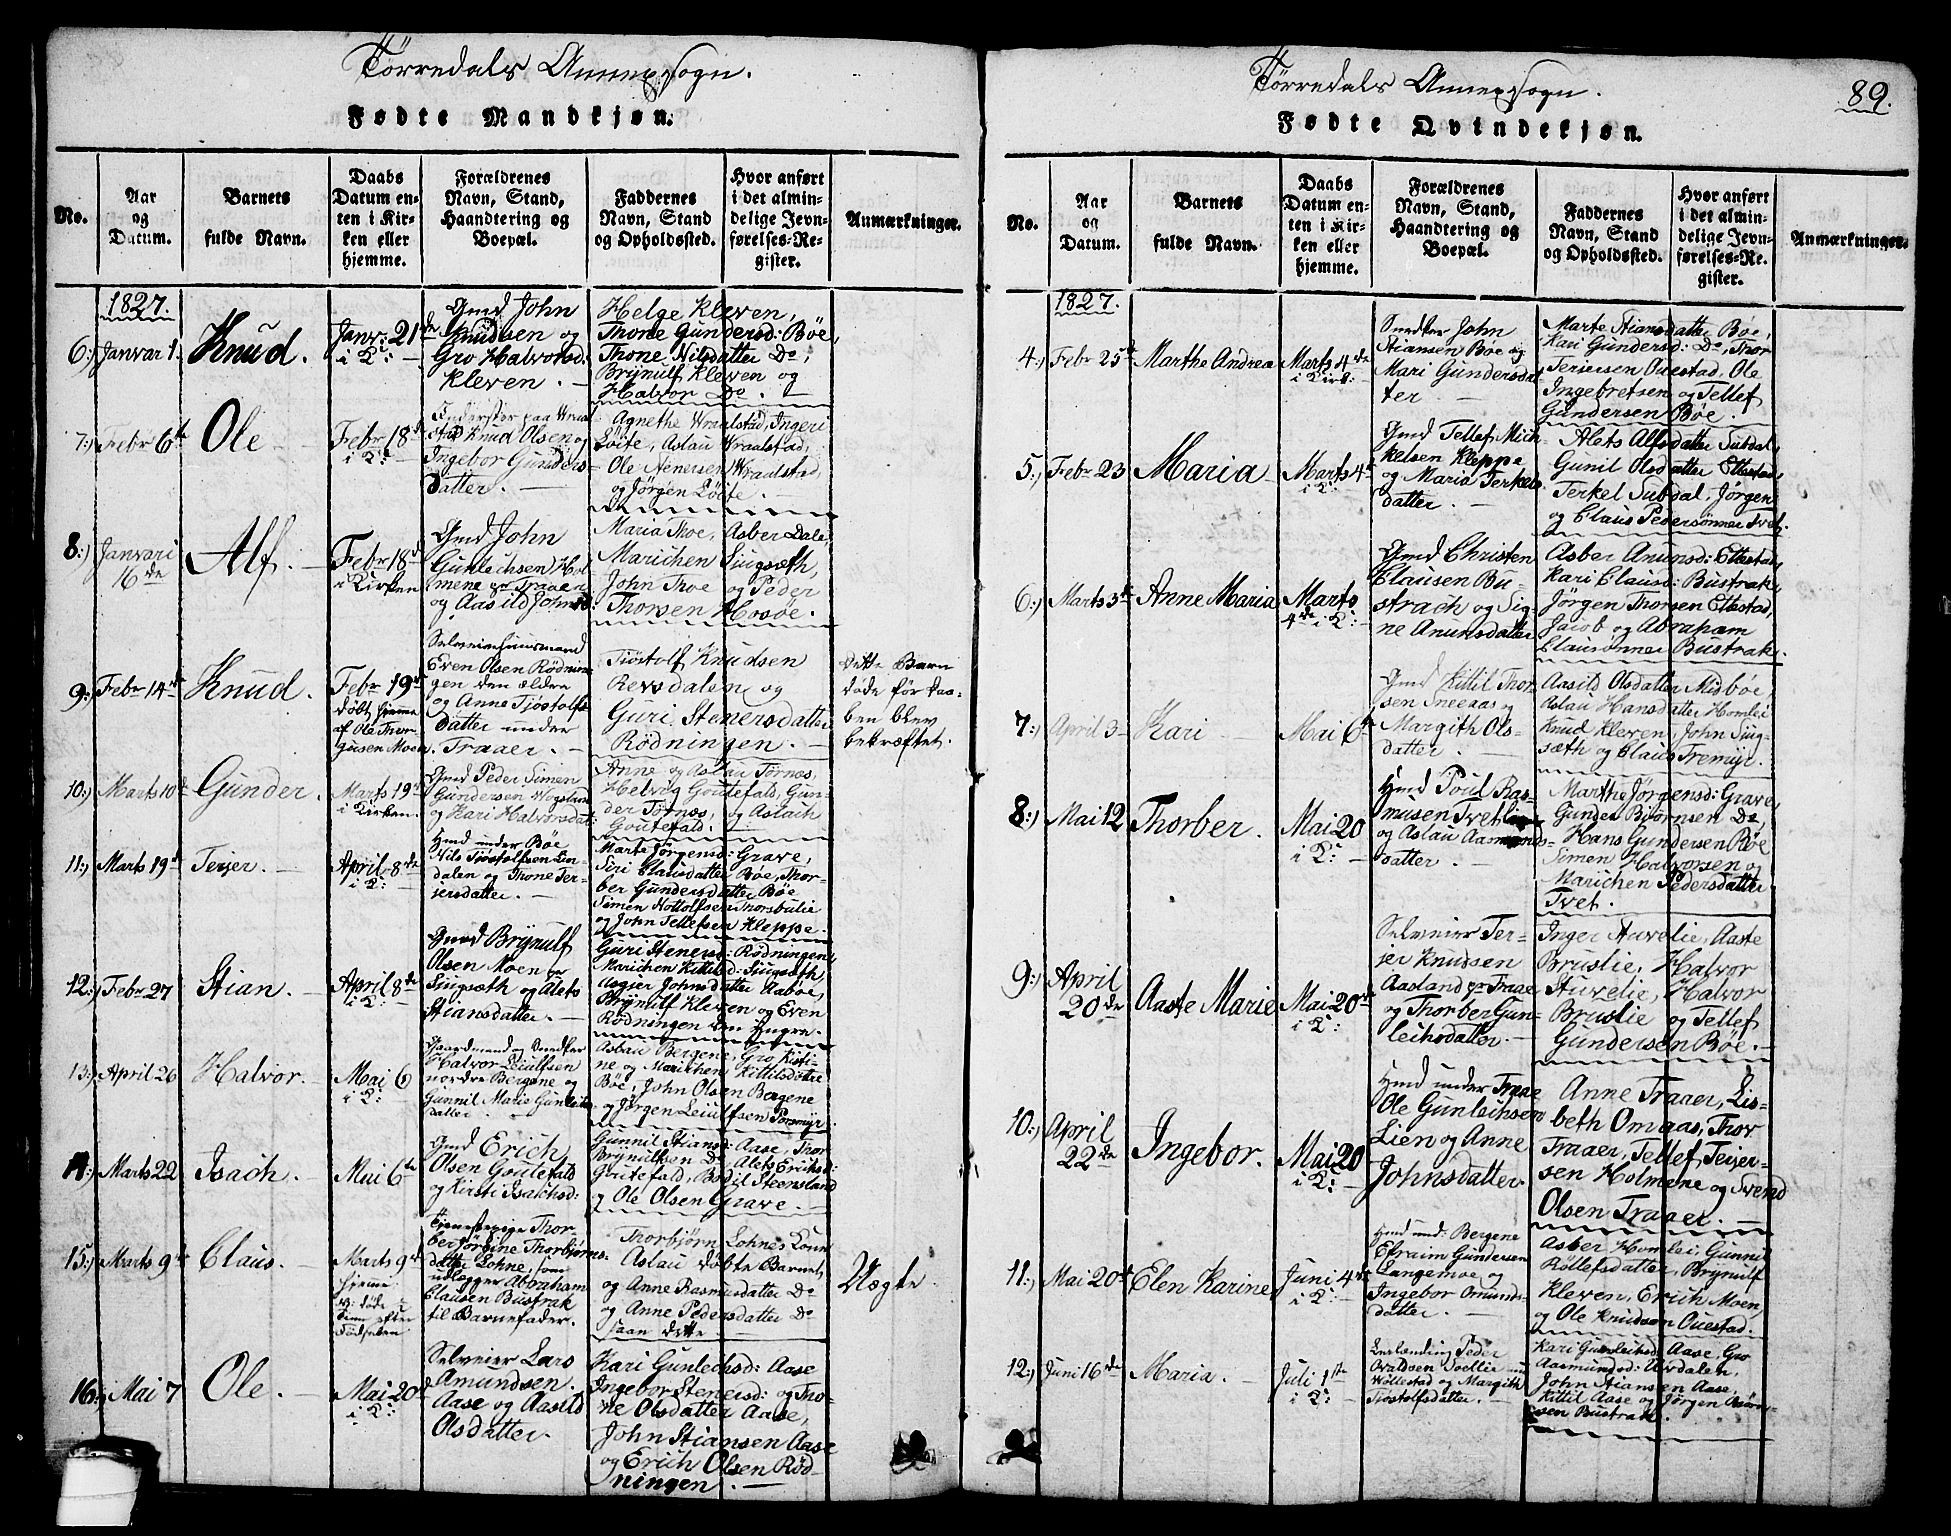 Törredals Annexsogn.
Fødte Mandkjøn.
No.
Aar og Datum.
Barnets fulde Navn.
Daabs Datum enten i Kirken eller hjemme.
Forældrenes Navn, Stand, Haandtering og Boepæl.
Faddernes Navn, Stand og Opholdssted.
Hvor anført i det almindelige Jevnførelses-Register.
Anmærkninger.
1827.
6:) Janvar 1.
Knud.
Janvr: 21de
i K:
Gmd John
Knudsen og
Gro Halvorsd:
Kleven.
Helge Kleven,
Thone Gundersd: Böe,
Thone Nilsdatter Do
Brÿnulf Kleven og
Halvor Do.
7:) Febr 6t
Ole
Febr 18d
i K:
Inderster paa Wraal
stad Knud Olsen og
Ingebor Gunders
datter.
Agnethe Wraalstad, Ingeri
Löite, Aslau Wraalstad,
Ole Nenersen Wraalstad,
og Jörgen Löite.
8:) Janvari
16de
Alf.
Febr 18d
i Kirken
Gmd John
Gunlechsen Hol
mene pr Traaer
og Aasild Johnsd:
Maria Thoe, Asber Dale,
Marichen Siugsæth,
John Thoe og Peder
Thorsen Hosöe.
9:) Febr 14de
Knud.
Febr 19de
döbt hjemme
af Ole Thor
gusen Moen.
Selveierhuusmand
Even Olsen Rödnin
gen den ældre
og Anne Tjöstolfs
datter under
Traaer.
Tjöstolf Knudsen
Revsdalen og
Guri Stenersdatter
Rödningen.
Dette Barn
döde för Daa-
ben blev
bekræftet.
10:) Marts 10de
Gunder.
Marts 19d
i Kirken.
Gmd Peder Simen
Gundersen Vogsland
og Kari Halvorsdat:
Anne og Aslau Törnæs,
Helvig Goutefald, Gun-
der Törnæs, og Aslach
Goutefald.
11:) Marts 19d
Terjer.
April 8de
i K:
Hmd under Böe
Nils Tjöstolfsen Lin
dalen og Thone Ter-
jersdatter.
Marte Jörgensd: Grave,
Siri Clausdatter Böe, Thor-
ber Gundersdatter Böe
Simen Hottolfsen Thorsbulie
og John Tellefsen Kleppe.
12:) Febr 27
Stian.
April 8de
i K:
Gmd Brÿnulf
Olsen Moen pr
Siugsæth og Alets
Stiansdatter.
Guri Stenersd: Rödningen,
Marichen Kittilsd: Siugsæth,
Aagjer Johnsdatter Aaböe,
Brÿnulf Kleven og Even
Rödningen den Yngre.
13:) April 26
Halvor.
Mai 6
i K:
Gaardmand og Smedker
Halvor Leiulfsen
nordre Bergene og
Gunnil Marie Gunleiks
datter.
Aslau Bergene, Gro Kisti-
ne og Marichen Kittilsdöttre
Böe, John Olsen Bergene
og Jörgen Leiulfsen Porsmÿr.
14:) Marts 22
Isach.
Mai 6te
Gmd Erich
Olsen Goutefald
og Kirsti Isachsd:
Gunnil Stiansd: Aase, Thor
Brÿnulfsen Do Alets Eriksd:
Goutefald, Bodil Steensland
og Ole Olsen Grave.
15:) Marts 9d
Claus.
Marts 9d
hjemme
Tjenestepige Thor-
berjörgine Thorbjörns
datter Lohne, som
udlagger Abraham
Clausen Bustrak
til Barnefader.
Thorbjörn Lohnes Kone
Aslau döbte Barnet
og Anne Rasmusdatter Do
og Anne Pedersdatter Do
saae dette
Uægte.
16:) Mai 7
Ole.
Mai 20d
i K:
Selveier Lars
Amundsen
Aase og Aasild
Olsdatter.
Kari Gunlechsd: Aase
Ingebor Stenersd: og Tho-
ne Olsdatter Aase,
John Stiansen Aase
og Erich Olsen Röd-
ningen.
Törredals Annexsogn.
89.
Fødte Qvindekjøn.
No.
Aar og Datum.
Barnets fulde Navn.
Daabs Datum enten i Kirken eller hjemme.
Forældrenes Navn, Stand, Haandtering og Boepæl.
Faddernes Navn, Stand og Opholdssted.
Hvor anført i det almindelige Jevnførelses-Register.
Anmærkninger.
1827.
4:) Febr 25de
Marthe Andrea
Marts 4de
i Kirk:
Smedker John
Stiansen Böe og
Mari Gundersdat
ter
Marte Stiansdatter Böe,
Kari Gundersd: Do, Thor
Terjersen Ouestad, Ole
Ingebretsen og Tellef
Gundersen Böe.
5:) Febr 23
Maria
Marts 4de
i K:
Gmd Tellef Mich-
kelsen Kleppe
og Maria Terkels
datter.
Alets Alfsdatter Subdal,
Gunil Olsdatter Ettestad,
Terkel Subdal, Jörgen
og Claus Pedersönner Tvet.
6:) Marts 3de
Anne Maria
Marts
4de i K:
Gmd Christen
Clausen Bu-
strach og Sig-
ne Anunsdatter
Asber Anunsd: Ettestad,
Kari Clausd: Bustrak,
Jörgen Thorsen Ettestad,
Jacob og Abraham
Clausönner Bustrak.
7:) April 3
Kari
Mai 6te
Gmd Kittil Thor-
sen Sneeaas og
Margith Ols-
datter.
Aasild Olsdatter Midböe,
Aslau Hansdatter Homlei
Knud Kleven, John Siug-
sæth og Claus Tremÿr.
8:) Mai 12
Thorber.
Mai 20
i K:
Hmd Poul Ras-
musen Tvet
og Aslau Aasmunds-
datter.
Marthe Jörgensd: Grave,
Gunder Björnsen Do,
Hans Gundersen Böe
Simen Halvorsen og
Marichen Pedersdatter
Tvet.
9:) April
20de
Aaste Marie
Mai 20de
i K:
Selveier Ter-
jer Knudsen
Aasland pr Traae
og Thorber Gun-
leiksdatter.
Inger Aurelie, Aaste
Bruslie, Halvor
Aurelie, Halvor
Bruslie og Tellef
Gundersen Böe.
10:) April
22de
Ingebor.
Mai 20
i K:
Hmd under Traae
Ole Gunleichsen
Lien og Anne
Johnsdatter
Anne Traaer, Lis-
beth Omaas, Thor
Traaer, Tellef Terjer-
sen Holmene og Svend
Olsen Traaer.
11:) Mai 20de
Elen Karine
Juni 4de
i K:
Hmd und: Bergene
Efraim Gundersen
Langemoe og
Ingebor Omunds-
datter.
Asber Homlei, Gunnil
Röllefsdatter, Brÿnulf
Kleven, Erich Moen,
og Ole Knudsen Ouestad.
12:) Juni 16de
Maria.
Juli 1ste
i K:
Peder
Wollestad og Margith
Tjostolfsdatter.
Kari Gunleihsd: Aase, Gro
Aasmundsd: Urdalen,
John Stiansen Aase,
Kittil Aase og Jörgen
sen Bustrak.